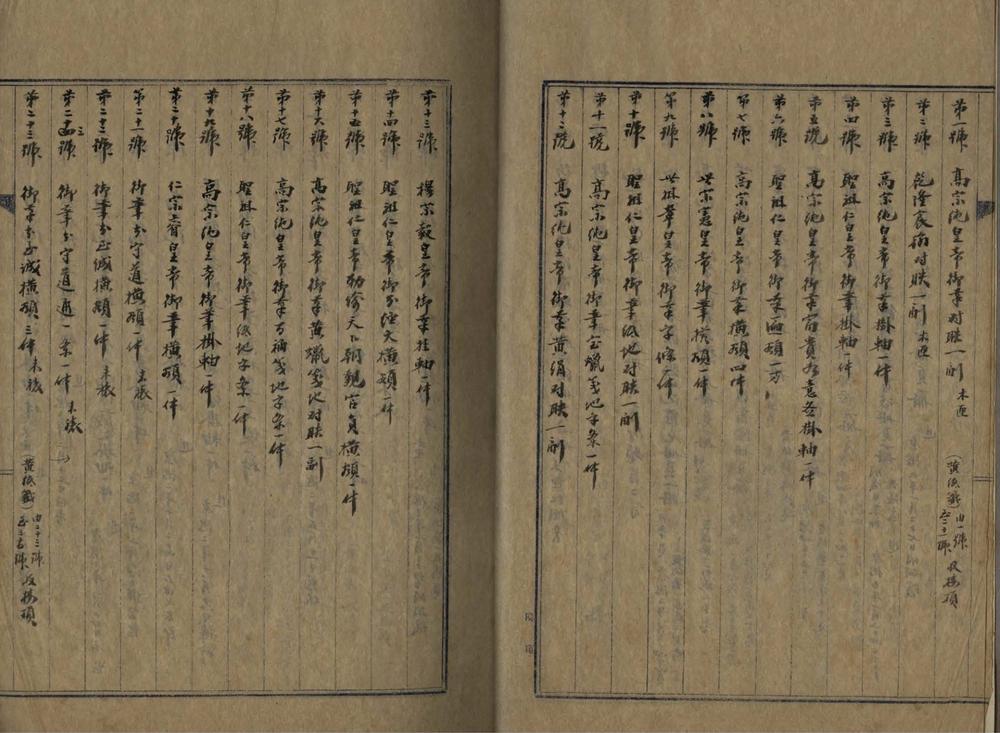 第一號 高宗純皇帝御筆对联一副 木匣
(黄纸籤) 由一號
至二十一號 收接頭
第二號 乾隆 对联一副 木匣
第三號 高宗純皇帝御筆掛軸一件
第四號 聖祖仁皇帝御筆掛軸一件
第五號 高宗純皇帝御筆富貴如意卷掛軸一件
第六號 聖祖仁皇帝御筆匾額一方
第七號 高宗純皇帝御筆横額四件
第八號 世宗憲皇帝御筆横額一件
第九號 世祖章皇帝御筆字條一件
第十號 聖祖仁皇帝御筆纸地对联一副
第十一號 高宗純皇帝御筆蠟笺地字条一件
第十二號 高宗純皇帝御筆黄绢对联一副
第十三號 穆宗毅皇帝御筆掛軸一件
第十四號 聖祖仁皇帝御書經文横額一件
第十五號 聖祖仁皇帝勅諭天下朝覲官員横額一件
第十六號 高宗純皇帝御筆黄蠟笺地对联一副
第十七號 高宗純皇帝御筆 笺地字条一件
第十八號 聖祖仁皇帝御筆纸地字条一件
第十九號 高宗純皇帝御筆掛軸一件
第二十號 仁宗睿皇帝御筆横額一件
第二十一號 御筆 守道横額一件 未裱
第二十二號 御筆 正誠横額一件 未裱
第二十三號 御筆 守道 一条一件 未裱
第二十三號 御筆 正誠横額三件 未裱
(黄纸籤) 由二十二號
號 收接頭